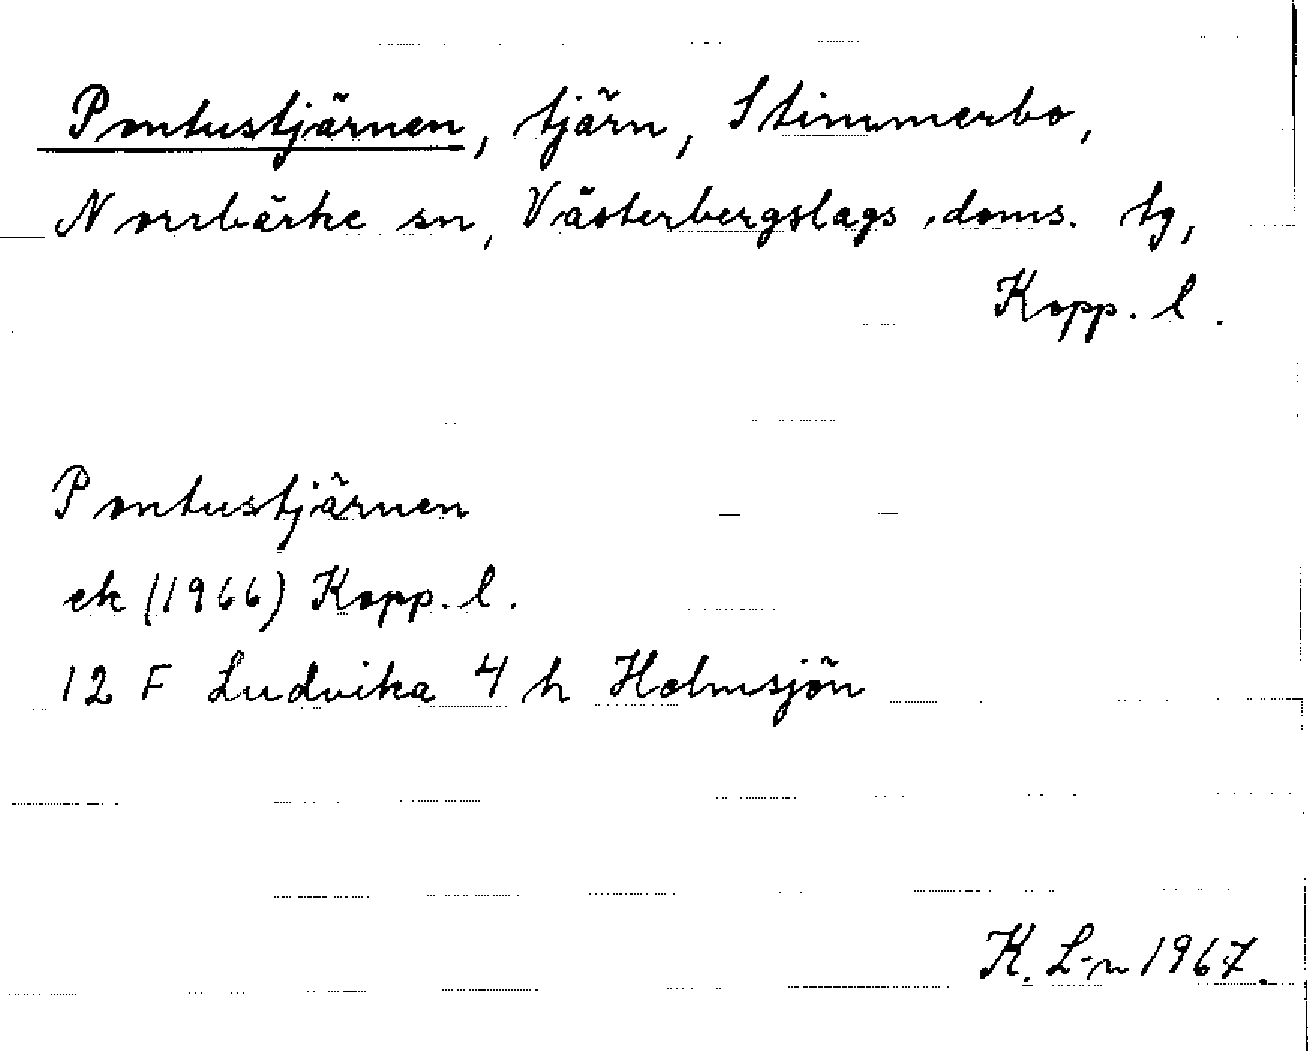 Pontustjärnen, tjärn, Stimmerbo,
Norrbärke sn, Västerbergslags doms. tg,
Kopp. l.
Pontustjärnen
ek (1966) Kopp. l.
12 F Ludvika 4 h Holmsjön
K. L-n 1967.